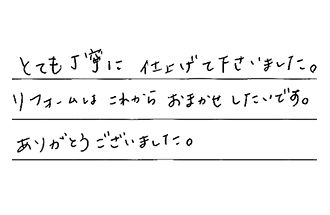 とても丁寧に 仕上げて下さいました。
リフォームは これから おまかせ したいです。
ありがとうございました。